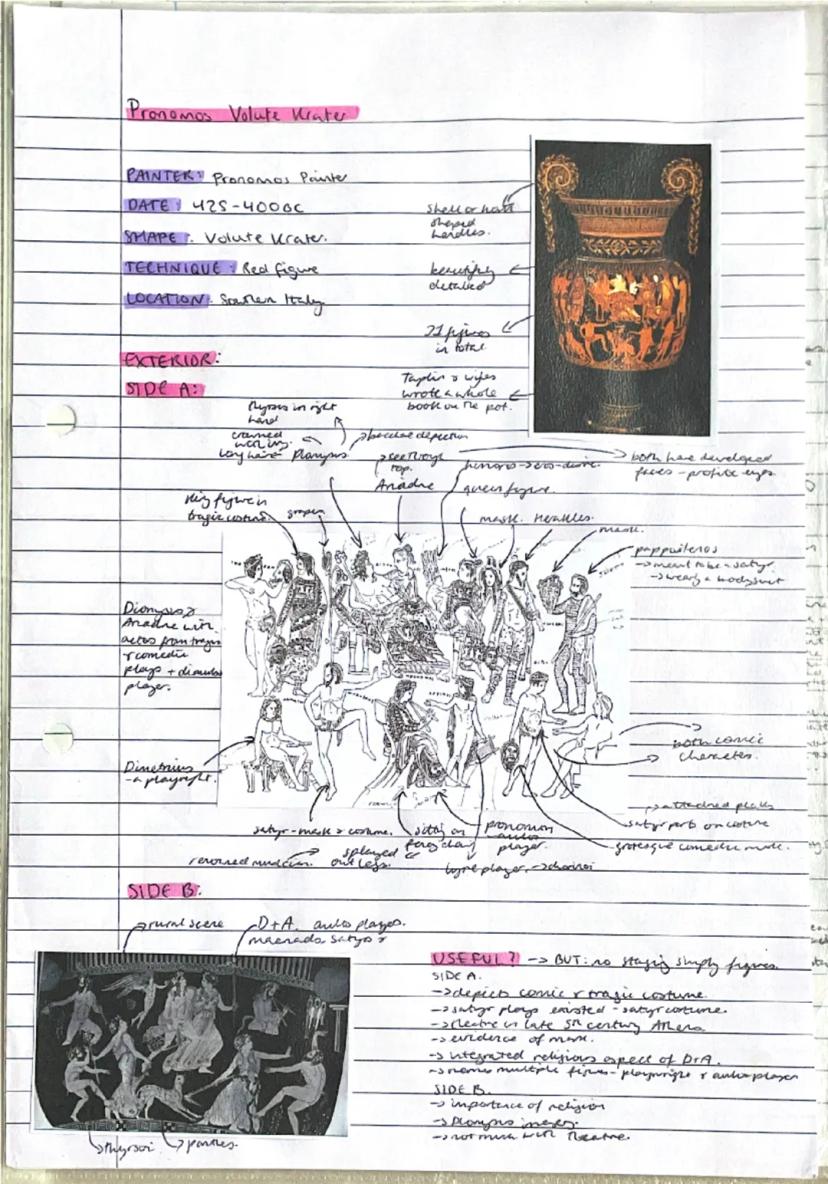 Pronomos Volute Krater
PAINTER: Pronomos Painter
DATE: 425-400BC
SHAPE: Volute Krater.
TECHNIQUE: Red figure
LOCATION: Southern Italy
shell or
shaped
handles.
beautifully
detailed
31 figures
in total
Taplin & wyles
wrote a whole
book on the pot.
EXTERIOR:
SIDE A:
thyrsos in right
hand
crowned
with ivy.
long hair - Dionysus
bacchae depiction
see through
top.
Ariadne
himeros -> eros-
queen figure.
both have developed
faces - profile eyes
king figure in
tragic costume
grapes
mask. Herakles.
mask.
papposilenos
-> meant to be a satyr
-> wearing a bodysuit
Dionysus &
Ariadne with
actors from tragic
& comedic
plays +
player.
Dimetrius
- a playwright.
both comic
characters.
-> attached phallus
satyr parts on costume
grotesque comedic mask.
satyr - mask & costume.
sitting on
fancy chair
pronomos
aulos
player.
renowned musician.
splayed
out legs.
lyre player. ->
SIDE B:
-> rural scene
D+A, aulos player,
maenads, satyrs &
-> thyrsoi
-> panther.
USEFUL? -> BUT: no staging simply figures.
SIDE A.
-> depicts comic & tragic costume.
-> satyr plays existed - satyr costume.
-> theatre in late 5th century Athens
-> evidence of mask.
-> integrated religious aspect of D+A.
-> names multiple figures - playwright & aulos player
SIDE B.
-> importance of religion
-> Dionysus
-> not much with theatre.